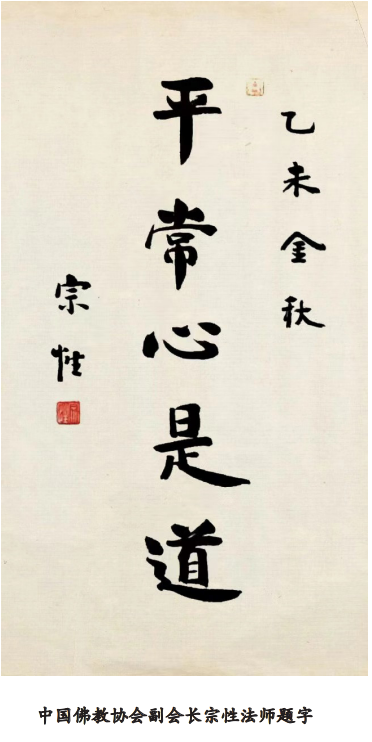 乙未金秋
平常心是道
宗性
中国佛教协会副会长宗性法师题字